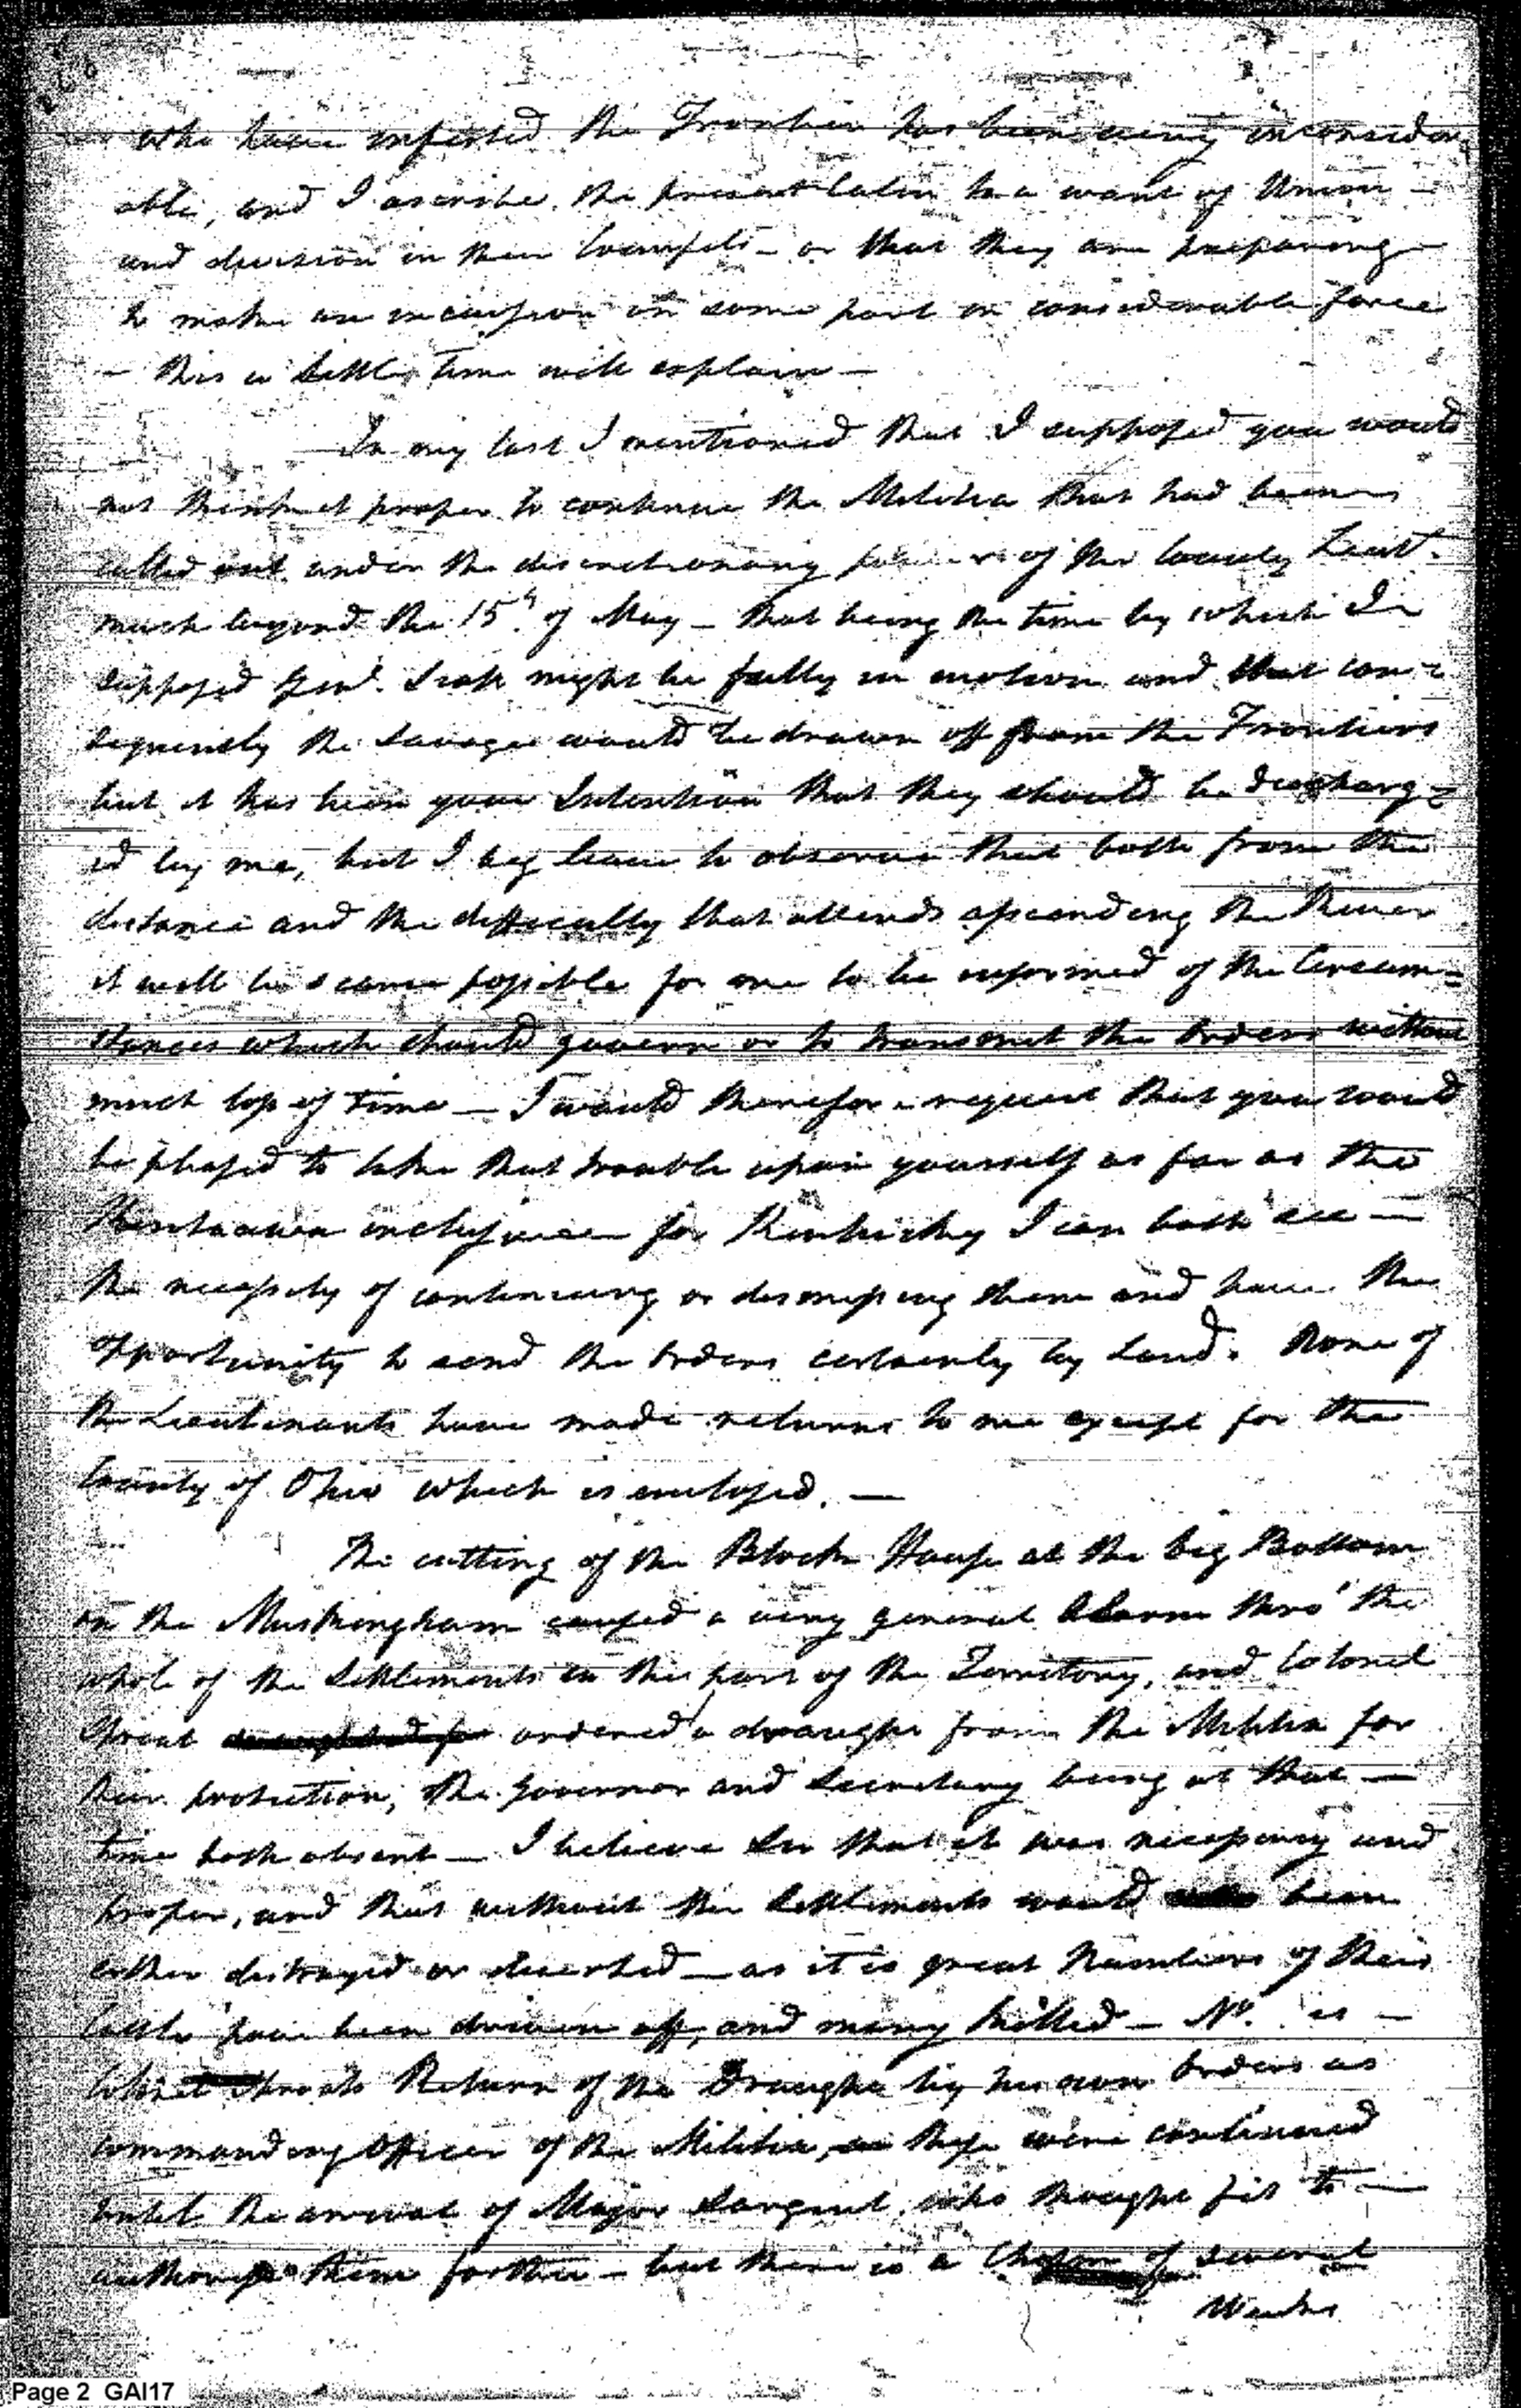 who have infested the Frontier has been very inconsider
able, and I ascribe the present calm to a want of Union —
and decision in their Counsels — or that they are preparing —
to make an incursion on some part in considerable force
— this a little time will explain —
In my last I mentioned that I supposed you would
not think it proper to continue the Militia that had been
called out under the discretionary powers of the County Lieut.
much beyond the 15th of May — that being the time by which I
supposed Genl. Scott might be fully in motion and that con=
sequently the Savages would be drawn off from the Frontiers
but it has been your Intention that they should be discharg=
ed by me, but I beg leave to observe that both from the
distance and the difficulty that attends ascending the River
it will be scarce possible for me to be informed of the Circum=
stances which should govern or to transmit the orders without
much loss of time — I would therefore request that you would
be pleased to take that trouble upon yourself as far as the
Kenhawa inclusive — for Kentucky I can both see —
the necessity of continuing or dismissing them and have the
opportunity to send the orders certainly by Land. None of
the Lieutenants have made returns to me except for the
County of Ohio which is enclosed. —
The cutting of the Block House at the big Bottom
on the Muskingham caused a very general Alarm thro' the
whole of the Settlements in this part of the Territory, and Colonel
Sproat ordered a draught from the Militia for
their protection, the Governor and Secretary being at that —
time both absent — I believe Sir that it was necessary and
proper, and that without the Settlements would been
either destroyed or deserted — as it is great Numbers of their
Cattle have been driven off, and many killed — No. is —
Colonel Sproats Return of the Draught by his own orders as
commanding Officer of the Militia, these were continued
until the arrival of Major Sargent who thought fit to —
authorise them further — but there is a Chasm of several
Weeks
Page 2 GAI17